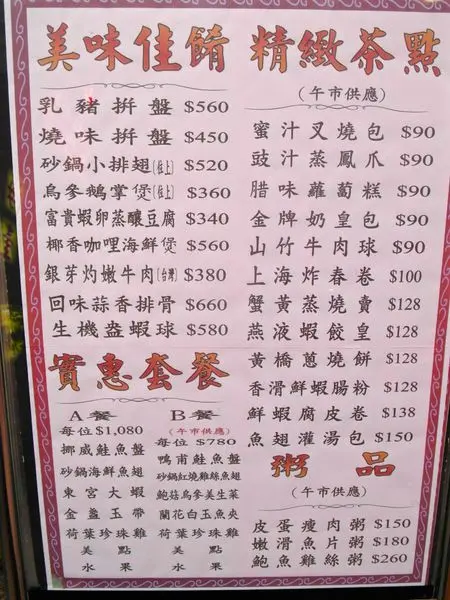 美味佳餚
乳豬拼盤 $560
燒味拼盤 $450
砂鍋小排翅(位上) $520
烏參鵝掌煲(位上) $360
富貴蝦卵蒸釀豆腐 $340
椰香咖哩海鮮煲 $560
銀芽灼嫩牛肉(台灣) $380
回味蒜香排骨 $660
生機盎蝦球 $580
精緻茶點
(午市供應)
蜜汁叉燒包 $90
豉汁蒸鳳爪 $90
腊味蘿蔔糕 $90
金牌奶皇包 $90
山竹牛肉球 $90
上海炸春卷 $100
蟹黃蒸燒賣 $128
燕液蝦餃皇 $128
黃橋蔥燒餅 $128
香滑鮮蝦腸粉 $128
鮮蝦腐皮卷 $138
魚翅灌湯包 $150
實惠套餐
A餐
每位$1,080
挪威鮭魚盤
砂鍋海鮮魚翅
東宮大蝦
金盞玉帶
荷葉珍珠雞
美點
水果
B餐
(午市供應)
每位 $780
鴨甫鮭魚盤
砂鍋紅燒雞絲魚翅
鮑菇烏參美生菜
蘭花白玉魚夾
荷葉珍珠雞
美點
水果
粥品
(午市供應)
皮蛋瘦肉粥 $150
嫩滑魚片粥 $180
鮑魚雞絲粥 $260